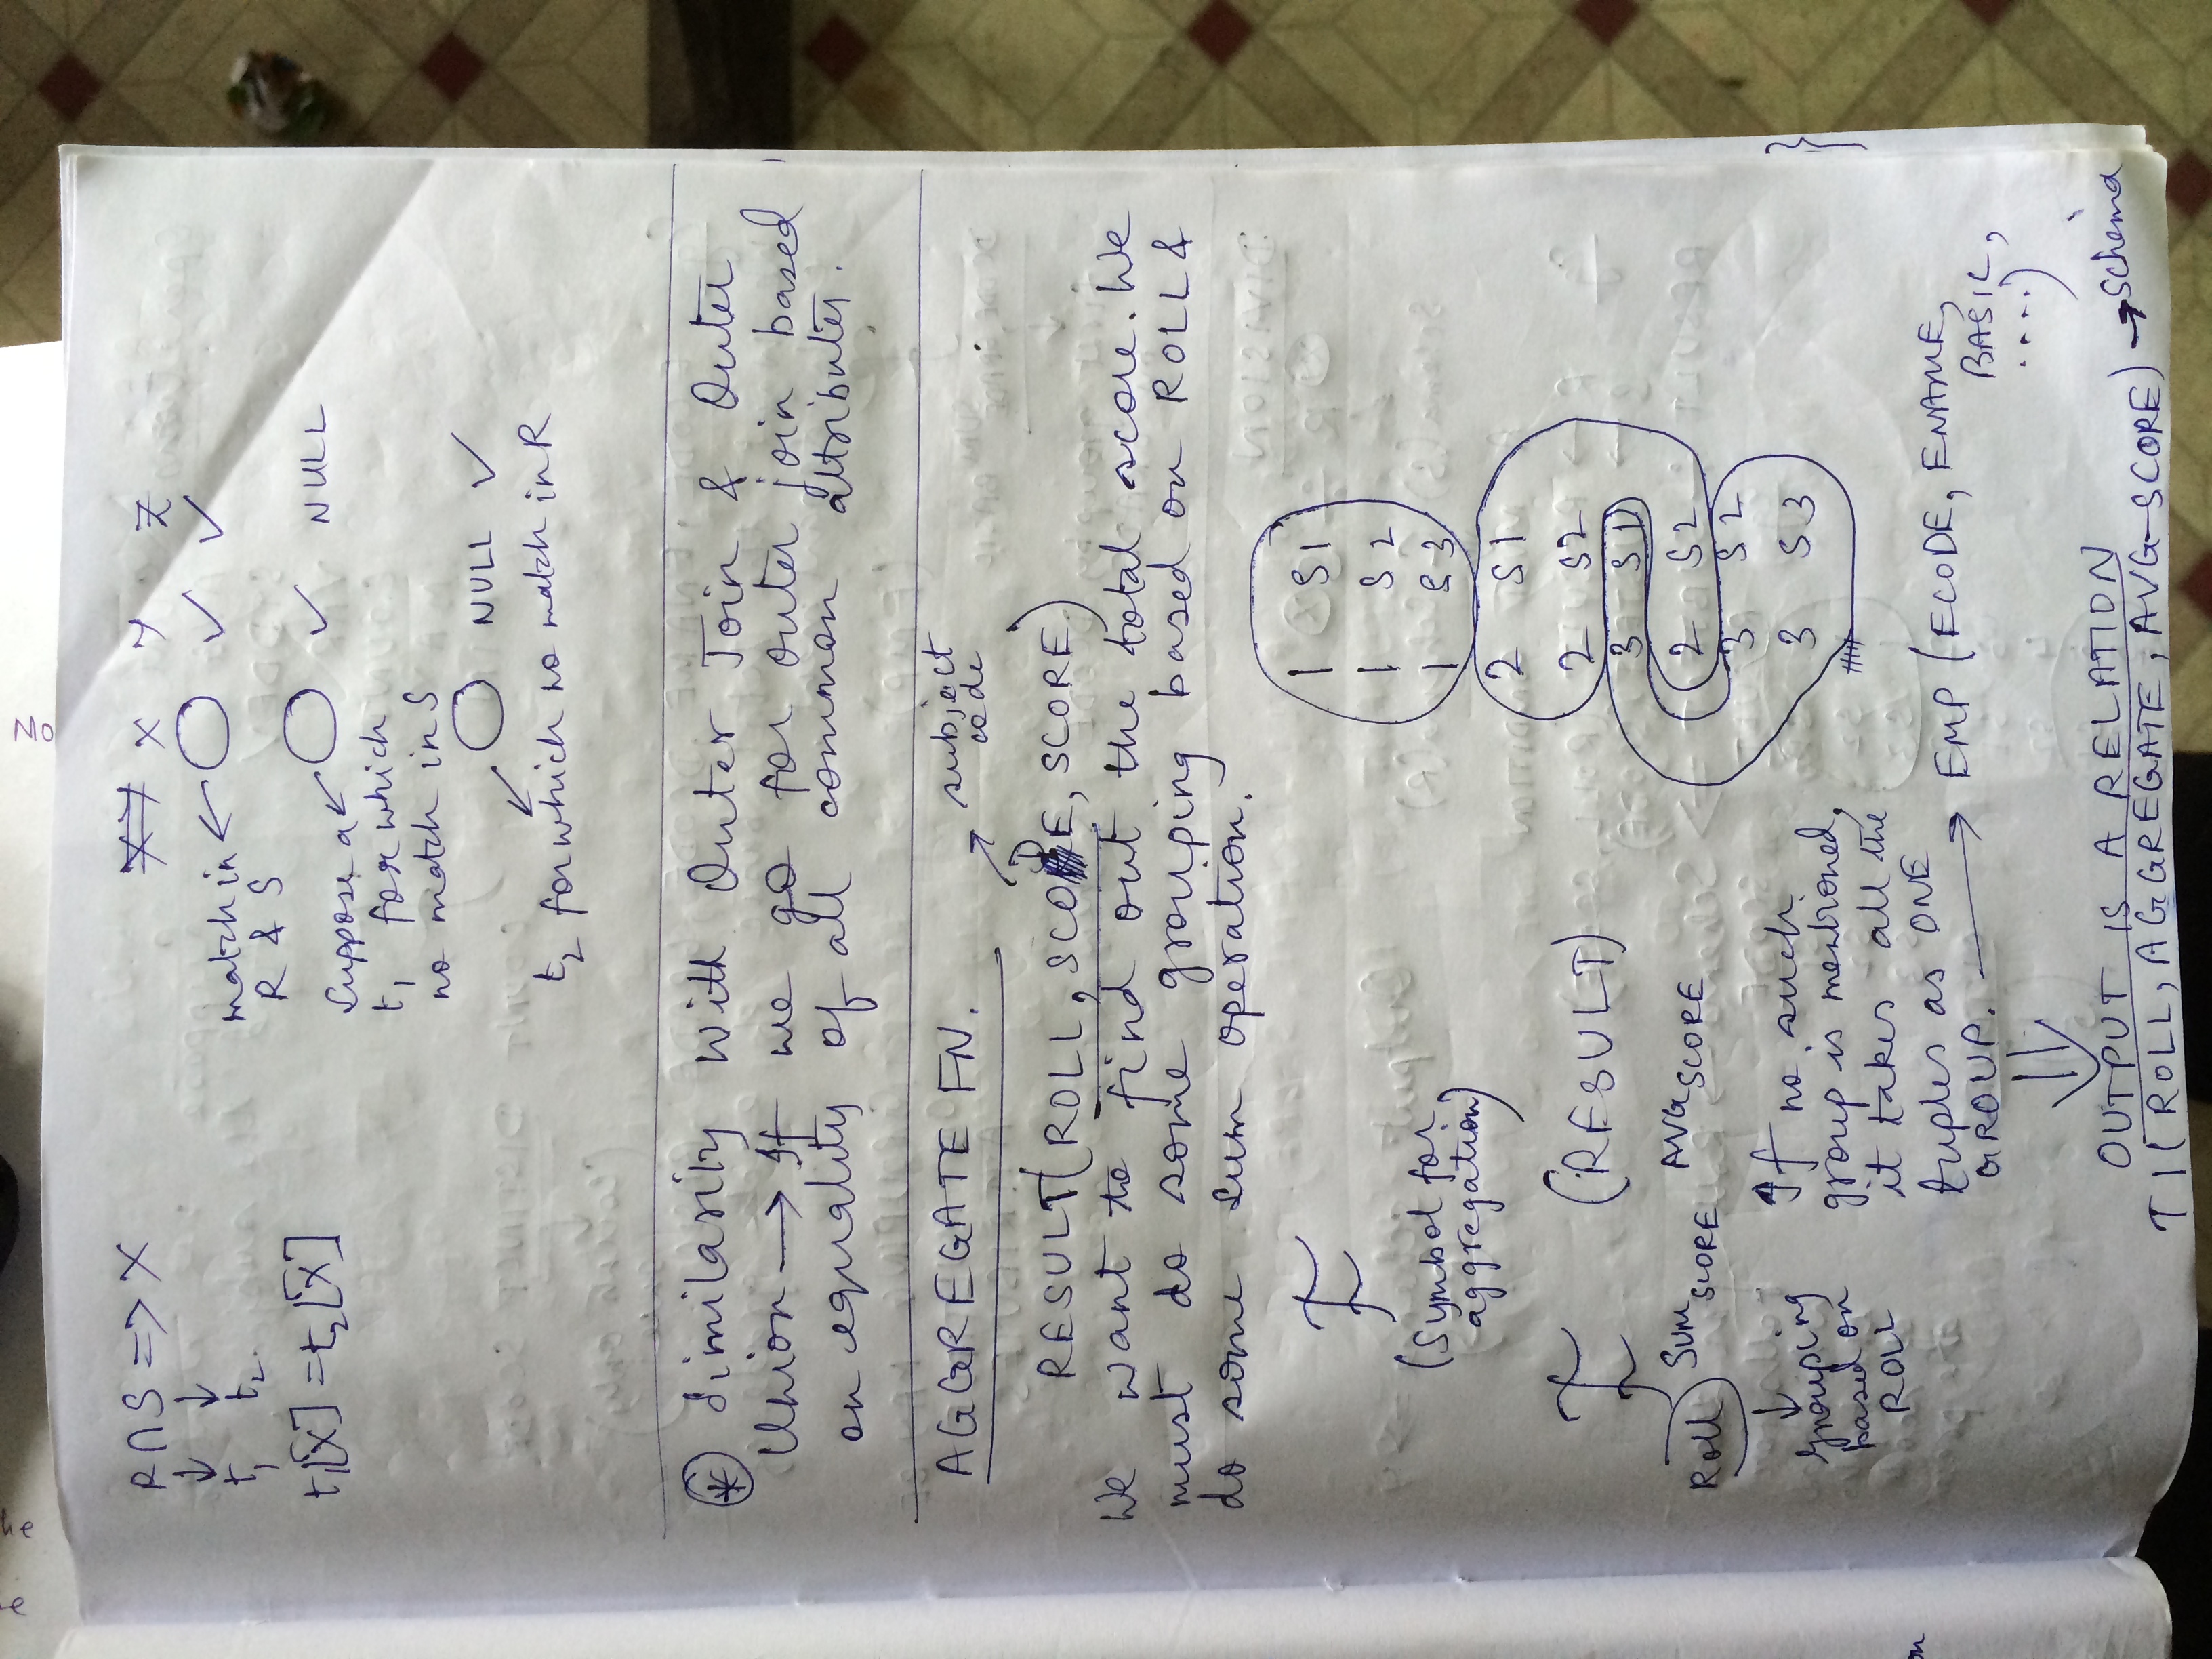 Mo
R∩S => X
↓ ↓
t1 t2.
t1[X] = t2[X]
X Y Z
match in ← ◯ ✓ ✓
R & S
Suppose a ← ◯ ✓ NULL
t1 for which
no match in S
◯ NULL ✓
t2 for which no match in R
* Similarity With Outer Join & Outer
Union → If we go for outer join based
on equality of all common attributes.
AGGREGATE FN.
subject
code
RESULT(ROLL, SCODE, SCORE)
We want to find out the total score. We
must do some grouping based on ROLL &
do some sum operation.
F
(Symbol for
aggregation)
1 S1
1 S2
1 S3
2 S1
2 S2
3 S1
2 S2
3 S2
3 S3
F (RESULT)
Roll SUM SCORE AVG SCORE
↓
Grouping
based on
ROLL
If no such
group is mentioned,
it takes all the
tuples as ONE
GROUP. → EMP (ECODE, ENAME,
BASIC,
....)
OUTPUT IS A RELATION
T1(ROLL, AGGREGATE, AVG-SCORE) → Schema